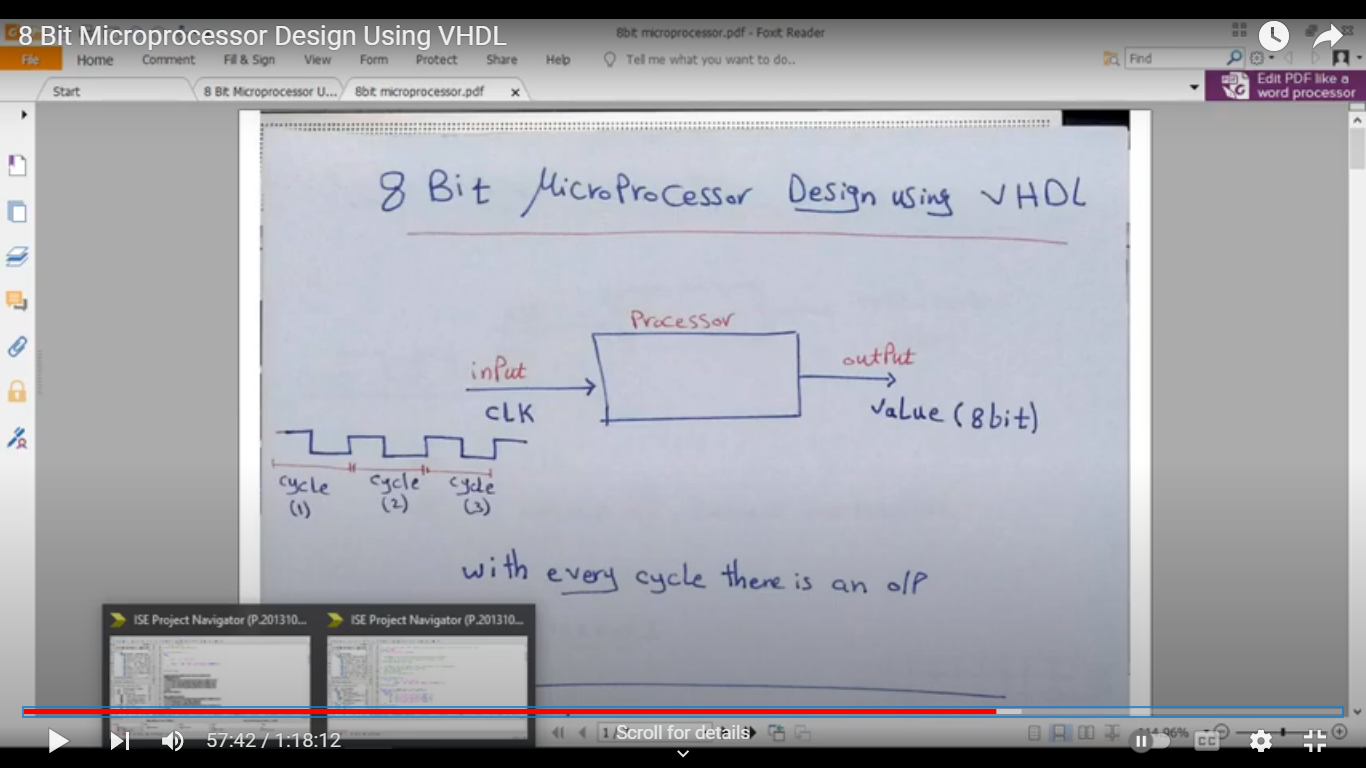 8 Bit Microprocessor Design Using VHDL
8bit microprocessor.pdf - Foxit Reader
File Home Comment Fill & Sign View Form Protect Share Help Tell me what you want to do.. Find
Start 8 Bit Microprocessor U... 8bit microprocessor.pdf
Edit PDF like a
word processor
8 Bit MicroProcessor Design using VHDL
Processor
inPut
outPut
CLK
value (8bit)
cycle cycle cycle
(1) (2) (3)
with every cycle there is an o/P
ISE Project Navigator (P.201310... ISE Project Navigator (P.201310...
57:42 / 1:18:12
1
Scroll for details
CC